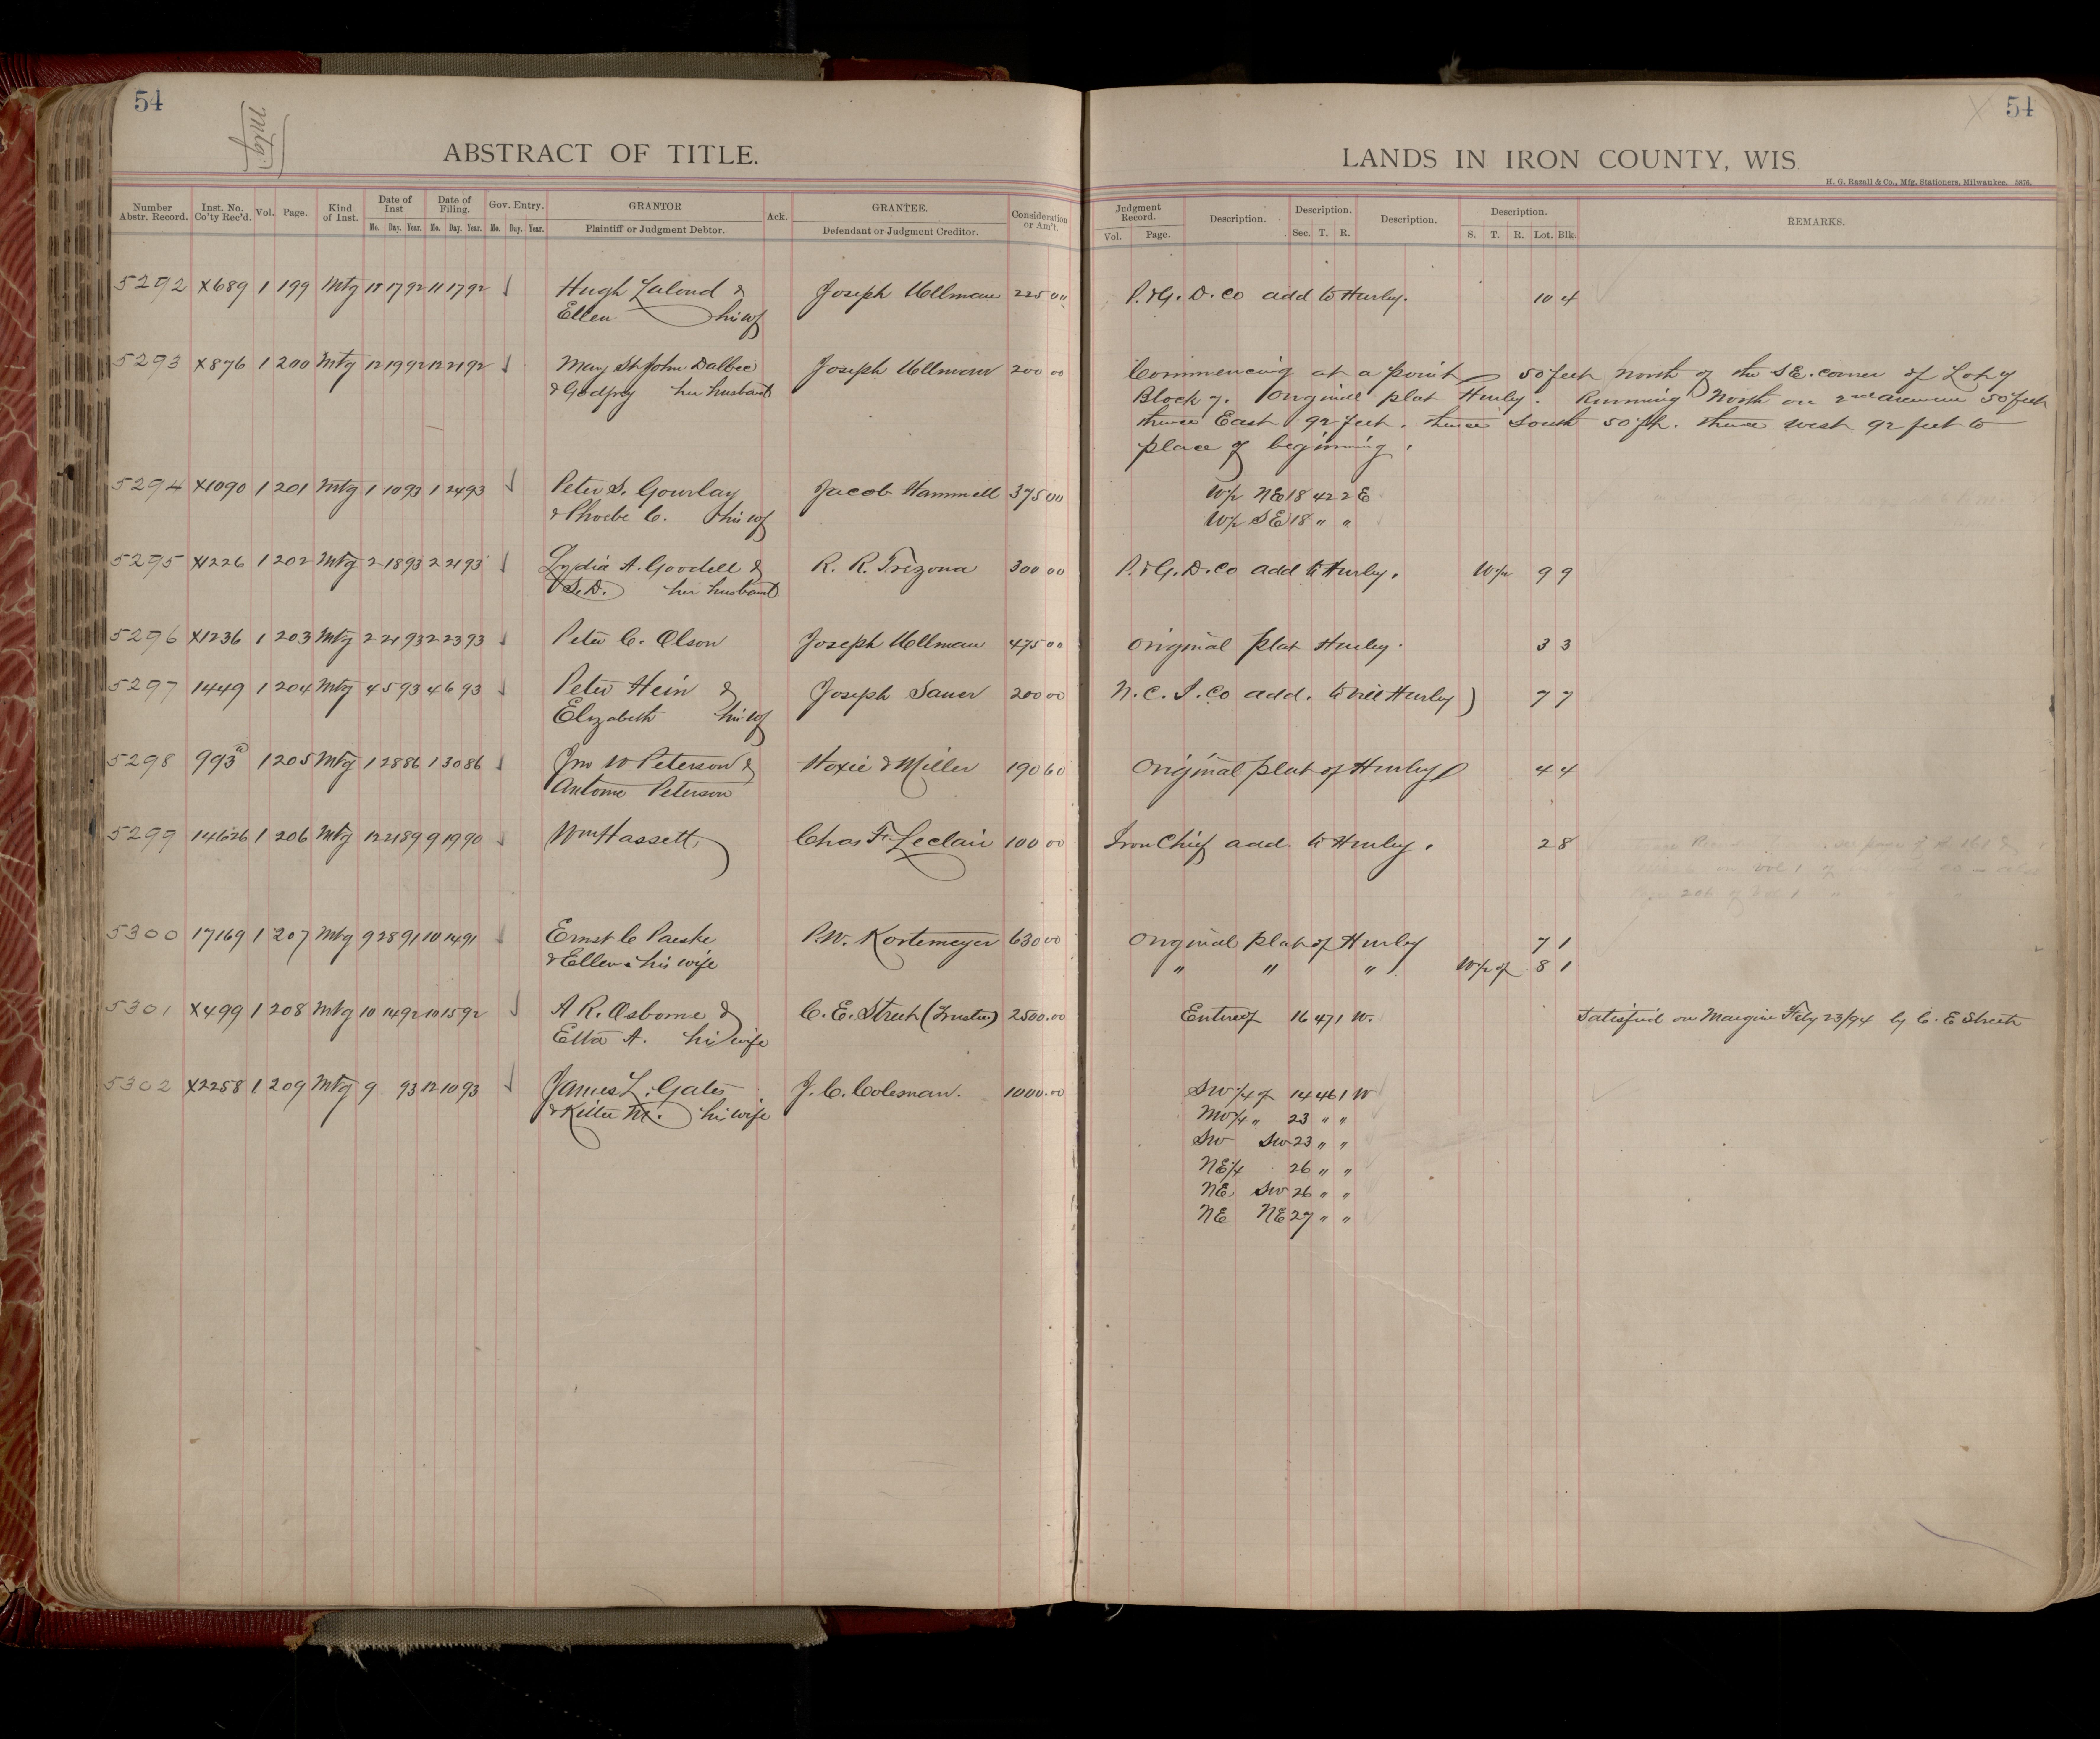 54
Mtg.
ABSTRACT OF TITLE.
Number Abstr. Record. Inst. No. Co'ty Rec'd. Vol. Page. Kind of Inst. Date of Inst Mo. Day. Year. Date of Filing. Mo. Day. Year. Gov. Entry. Mo. Day. Year. GRANTOR Plaintiff or Judgment Debtor. Ack. GRANTEE. Defendant or Judgment Creditor. Consideration or Am't.
5292 X689 1 199 Mtg 11 17 92 11 17 92 Hugh Lalond & Joseph Ullman 225 00
Ellen his wf
5293 X876 1 200 Mtg 12 19 92 12 21 92 Mary St John Dalbec Joseph Ullman 200 00
& Godfrey her husband
5294 X1090 1 201 Mtg 1 10 93 1 24 93 Peter S. Gourlay Jacob Hammell 375 00
& Phoebe C. his wf
5295 X1226 1 202 Mtg 2 18 93 2 21 93 Lydia A. Goodell & R. R. Trezona 300 00
S. D. her husband
5296 X1236 1 203 Mtg 2 21 93 2 23 93 Peter C. Olson Joseph Ullman 475 00
5297 1449 1 204 Mtg 4 5 93 4 6 93 Peter Hein & Joseph Sauer 200 00
Elizabeth his wf
5298 993a 1 205 Mtg 1 28 86 1 30 86 Jno W Peterson & Hoxie & Miller 190 60
Antome Peterson
5299 14626 1 206 Mtg 12 21 89 9 19 90 Wm Hassett Chas F. Leclair 100 00
5300 17169 1 207 Mtg 9 28 91 10 14 91 Ernst C Paeske P. W. Kortemeyer 630 00
& Ellen his wife
5301 X499 1 208 Mtg 10 14 92 10 15 92 A R. Osborne & C. E. Street (Trustee) 2500.00
Etta A. his wife
5302 X2258 1 209 Mtg 9 93 12 10 93 James L. Gates J. C. Coleman. 1000.00
& Kittie M. his wife
X 54
LANDS IN IRON COUNTY, WIS.
H. G. Razall & Co., Mfg. Stationers, Milwaukee. 5876.
Judgment Record. Vol. Page. Description. Description. Sec. T. R. Description. Description. S. T. R. Lot. Blk. REMARKS.
P. & G. D. Co add to Hurley. 10 4
Commencing at a point 50 feet North of the SE. corner of Lot 9
Block 7. Original plat Hurley. Running North on 2nd avenue 50 feet
thence East 92 feet. thence South 50 ft. thence west 92 feet to
place of beginning.
W½ NE 18 42 2 E
W½ SE 18 " "
P. & G. D. Co add to Hurley. W½ 9 9
Original plat Hurley. 3 3
N. C. I. Co add. to vill Hurley 7 7
Original plat of Hurley 4 4
Iron Chief add. to Hurley. 2 8
Original plat of Hurley 7 1
" " " W½ of 8 1
Entire of 16 47 1 W. Satisfied on Margin Feby 23/94 by C. E Street
SW ¼ of 14 46 1 W
NW ¼ " 23 " "
SW SW 23 " "
NE ¼ 26 " "
NE SW 26 " "
NE NE 27 " "